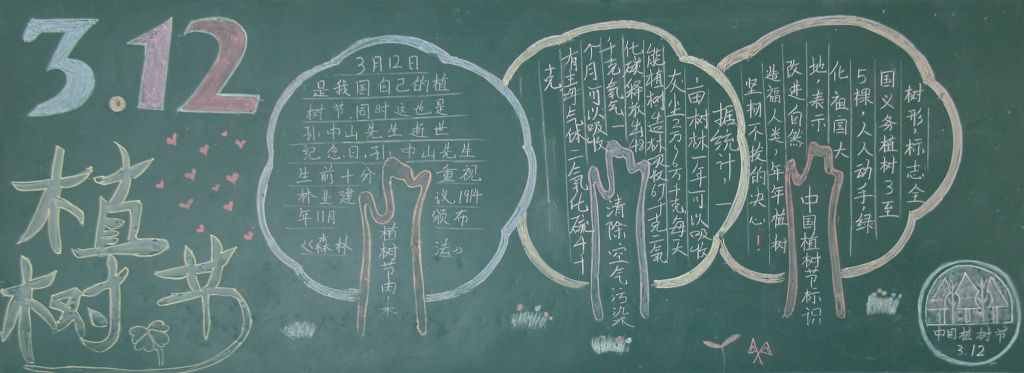 3.12
植树节
3月12日
是我国自己的植
树节,同时这也是
孙中山先生逝世
纪念日,孙中山先生
生前十分重视
林业建议,1914
年11月颁布
《森林法》
植树节由来
据统计,一
亩树林一年可以吸收
灰尘2万~6万千克每天
能
千克氧气一
个月可以吸收
有毒气体二氧化硫4千
克
清除空气污染
树形,标志全
国义务植树3至
5棵,人人动手绿
化祖国大
地.表示
改进自然
造福人类,年年植树
坚韧不拔的决心!
中国植树节标识
中国植树节
3.12